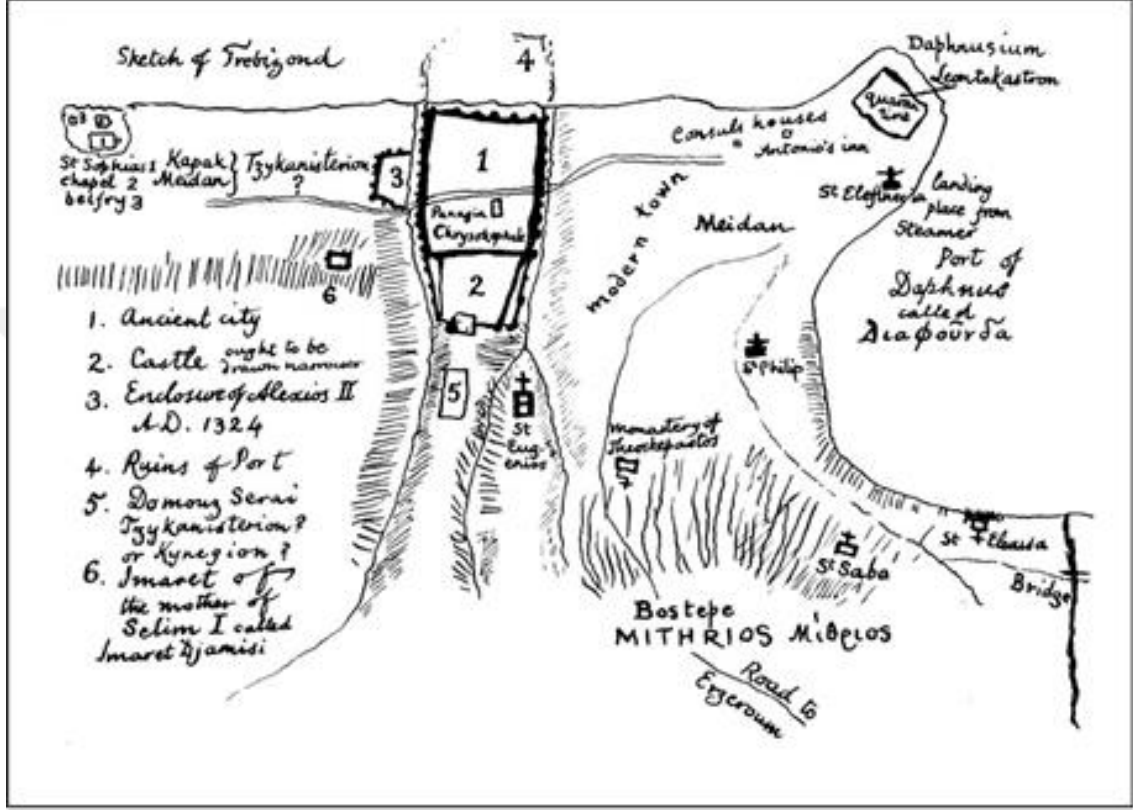 Sketch of Trebizond
4
Daphnusium
Leontokastron
quaran
tine
Consuls houses
Antonio's inn
3 2
1
St Sophias 1
chapel 2
belfry 3
Kapak
Meidan
Tzykanisterion
?
3
1
Panagia
Chrysokephale
2
6
5
St
Eug-
enios
modern town
Meidan
St Elefther
landing
place from
Steamer
Port of
Daphnus
called
Διαφούνδα
St Philip
monastery of
Theoskepastos
St Saba
St Eleousa
Bridge
Bostepe
MITHRIOS Μίθριος
Road to
Erzeroum
1. Ancient city
2. Castle ought to be
drawn narrower
3. Enclosure of Alexios II
A.D. 1324
4. Ruins of Port
5. Domouz Serai
Tzykanisterion?
or Kynegion?
6. Imaret of
the mother of
Selim I called
Imaret Djamisi